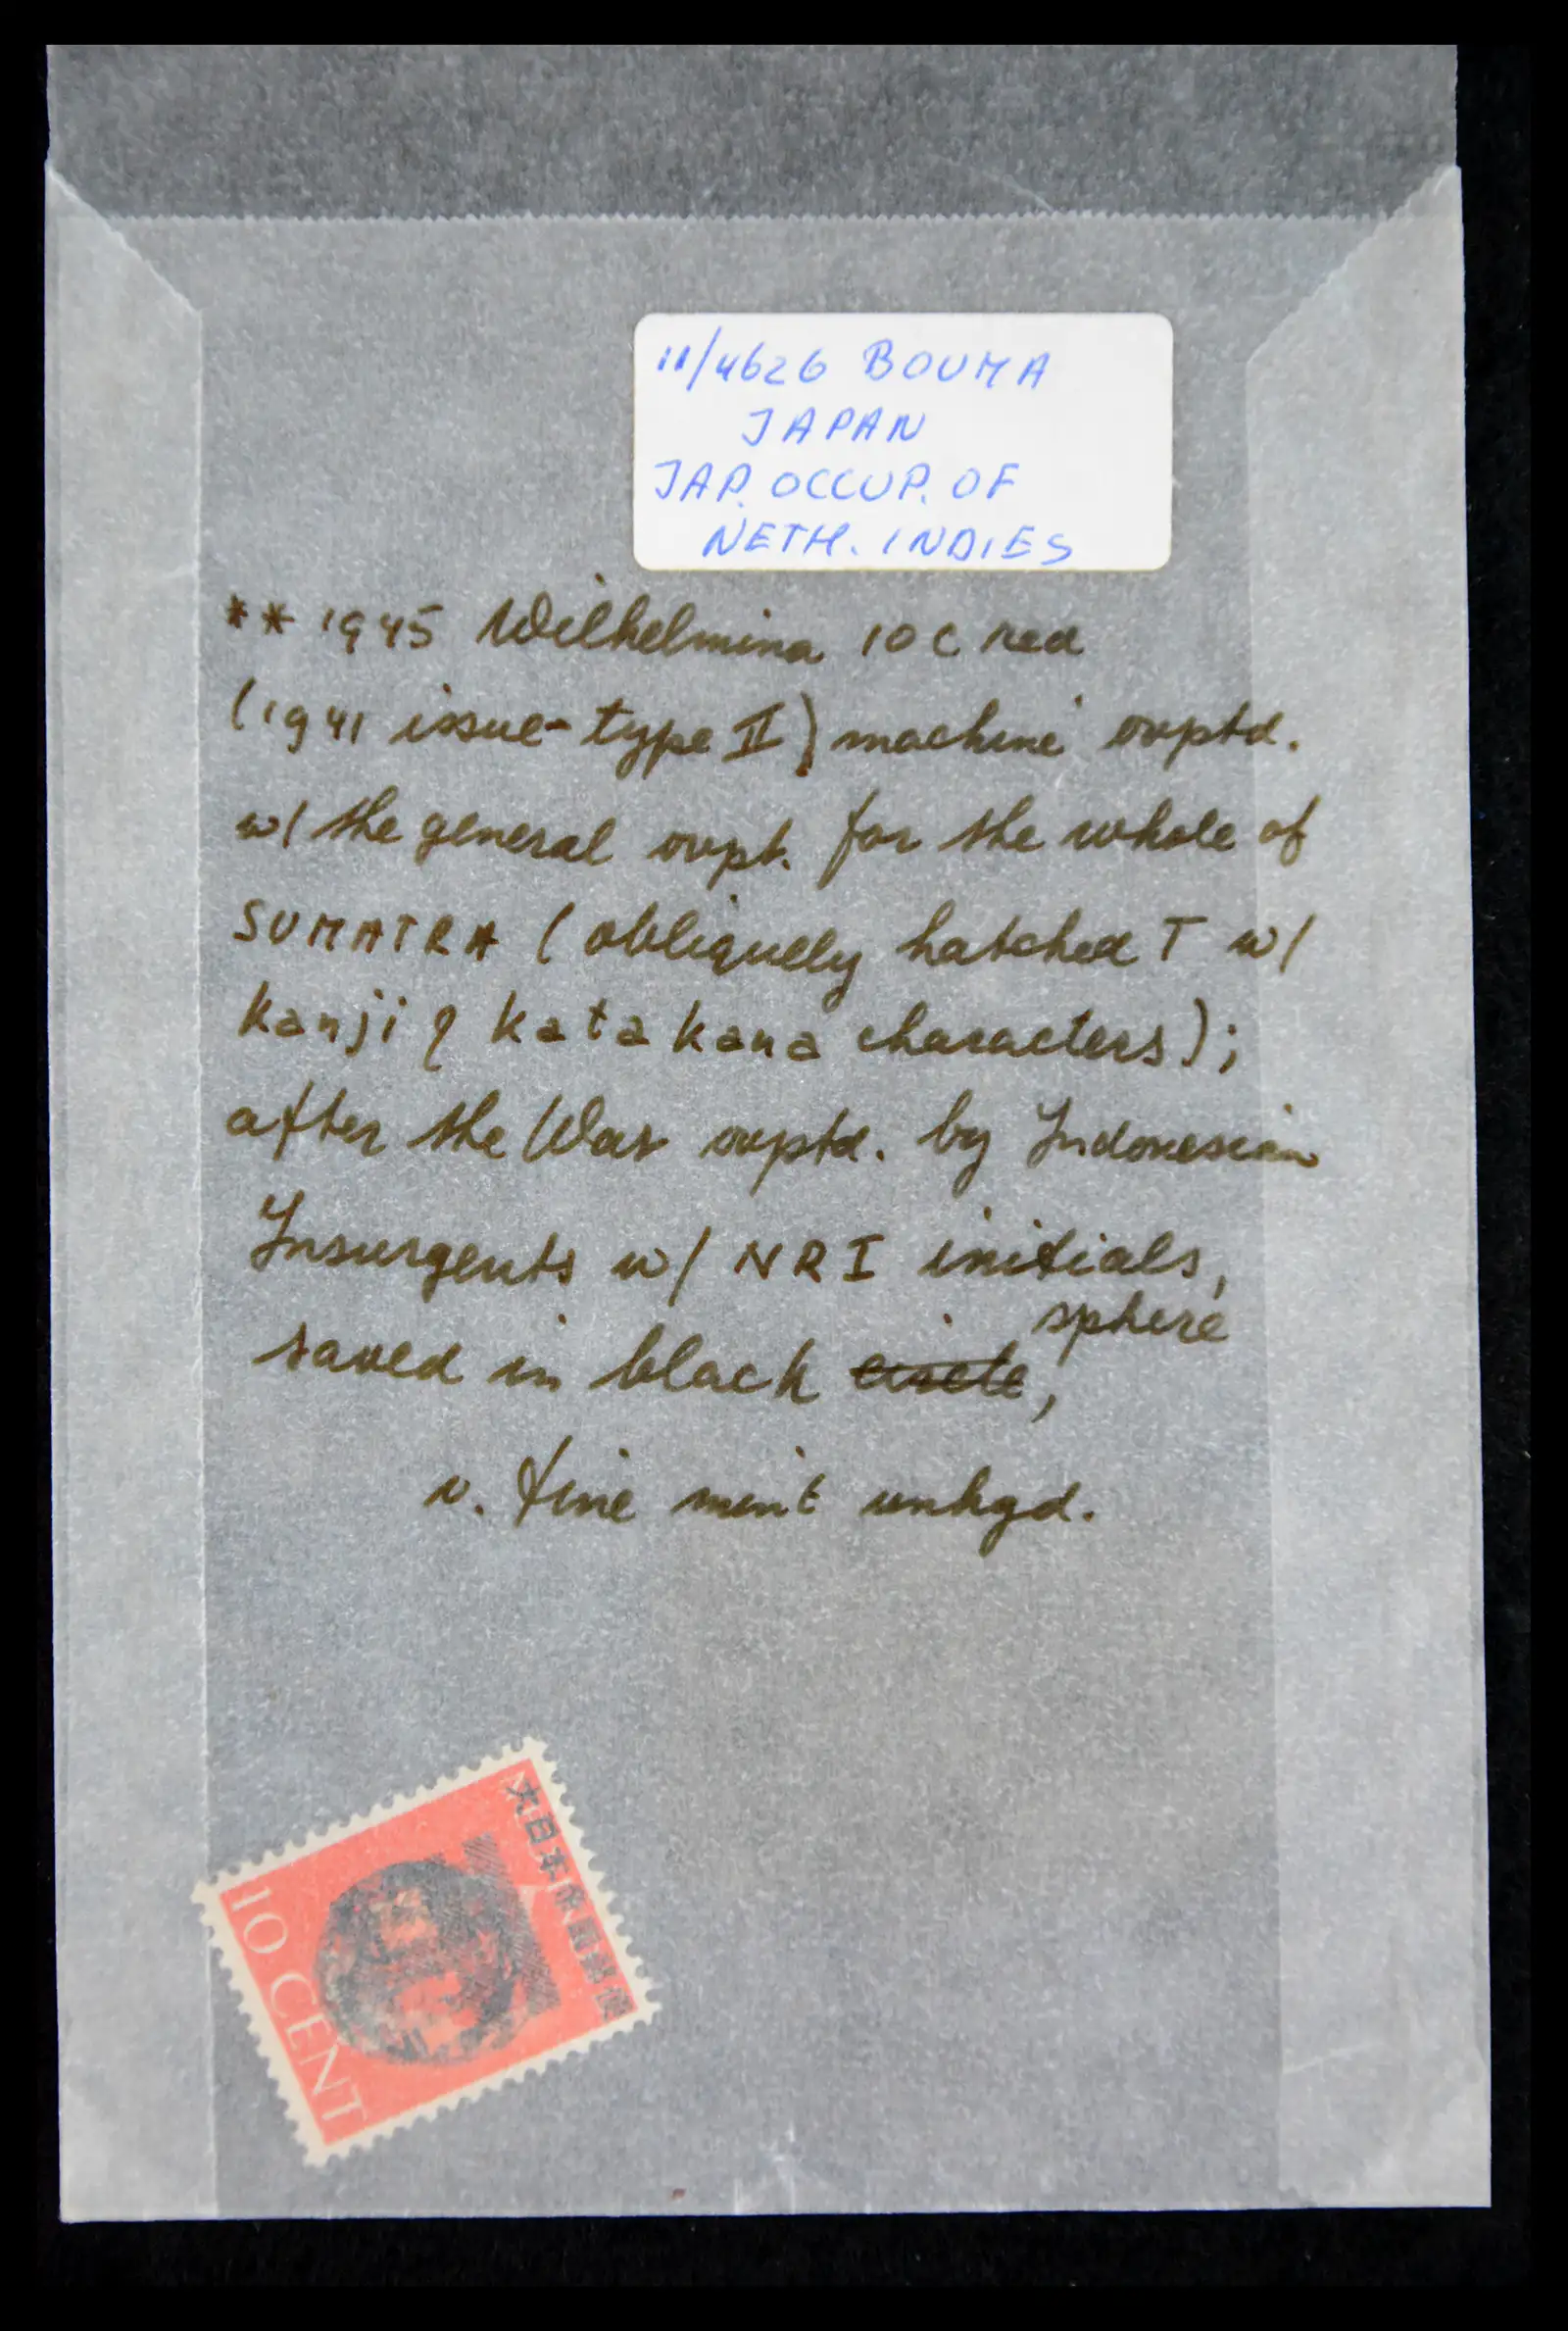 11/4626 BOUMA
JAPAN
JAP. OCCUP. OF
NETH. INDIES
** 1945 Wilhelmina 10 c red
(1941 issue - type II) machine ovptd.
w/ the general ovpt. for the whole of
SUMATRA (obliquelly hatched T w/
kanji & katakana characters);
after the War ovptd. by Indonesian
Insurgents w/ NRI initials,
saved in black circle, sphere
v. fine mint unhgd.
大日本帝國郵便
10 CENT